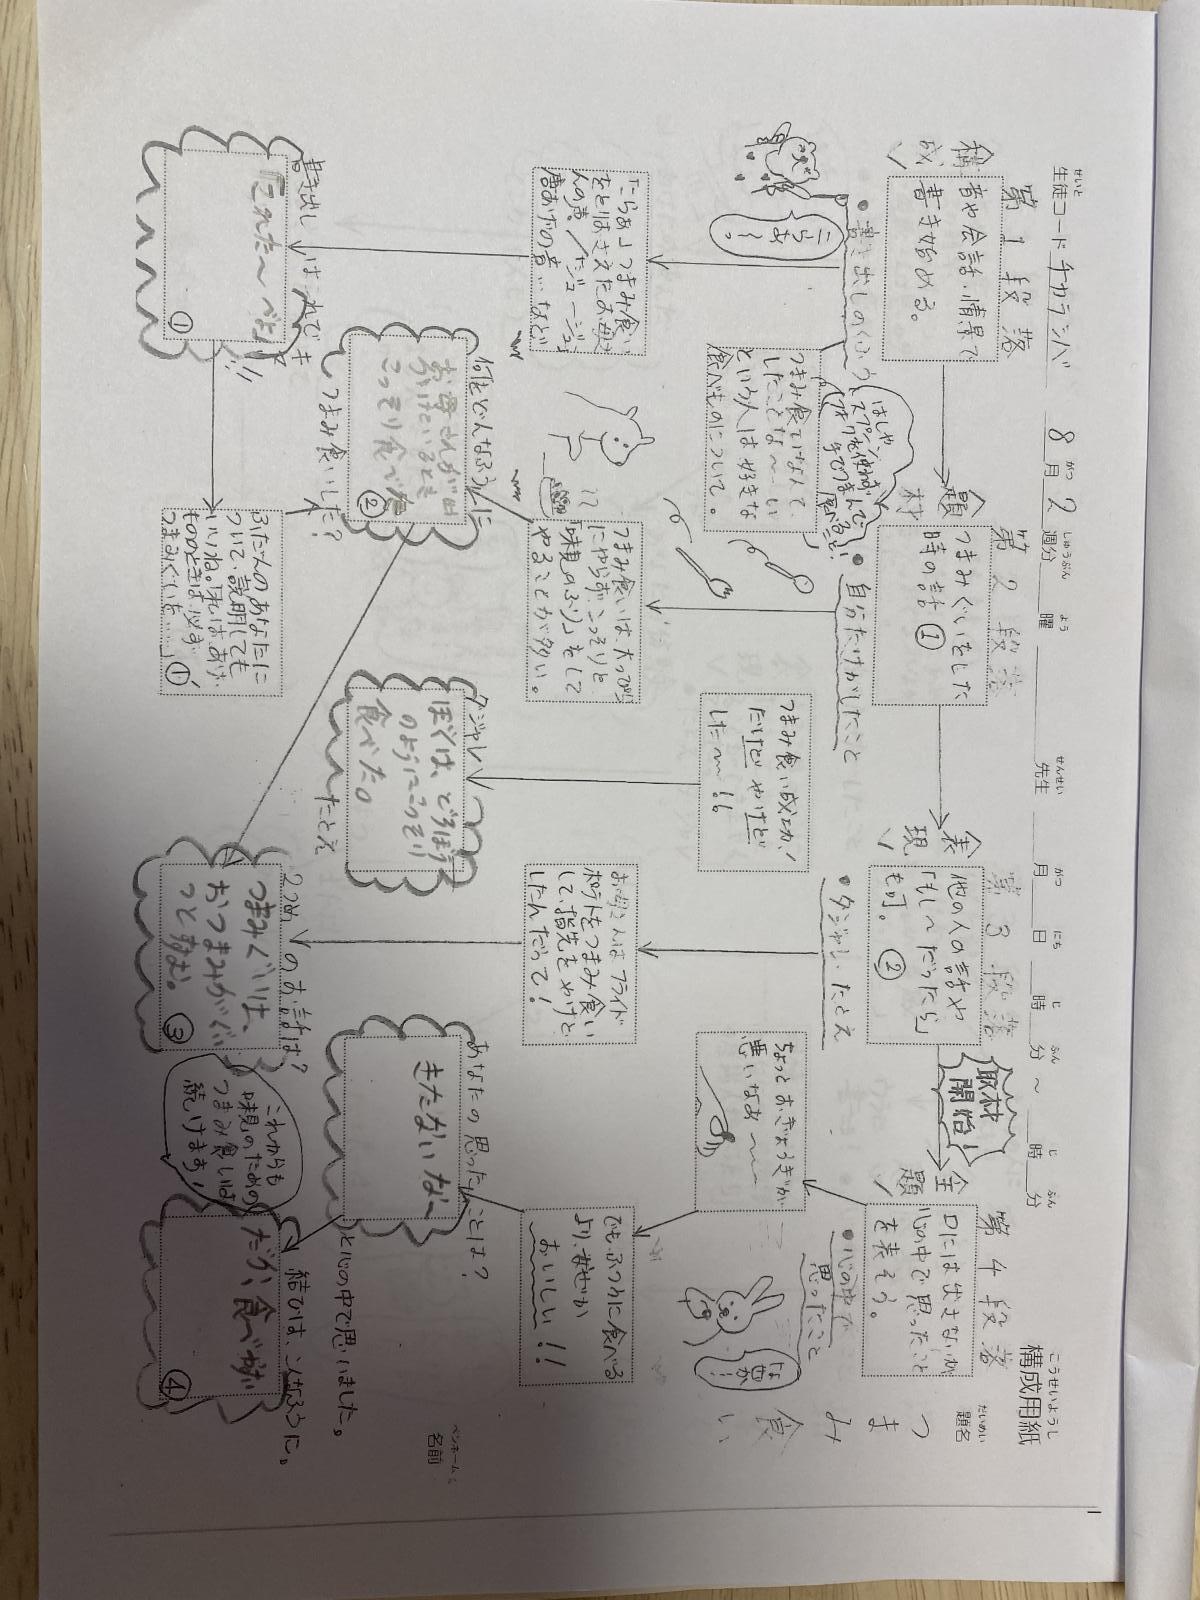 構成用紙
こうせいようし
題名
だいめい
つまみ食い
生徒コード チカラシバ
せいと
8月2週分
がつ
しゅうぶん
曜
よう
先生
せんせい
月 日 時 分 ～ 時 分
がつ にち じ ふん じ ふん
ペンネーム
名前
構成
第1段落
音や会話・情景で
書き始める。
題材
第2段落
つまみぐいをした
時の話①
表現
第3段落
他の人の話や
「もし～だったら」
も可。②
取材
開始!
全題
第4段落
口には出さないが
心の中で思ったこと
を表そう。
・書き出しのくふう
こらあ～。
はしや
スプーン・
フォークを使わずに
手でつまんで
食べること!
・自分だけがしたこと
・ダジャレ・たとえ
・心の中で
思ったこと
なぜか!
つまみ食いなんて、
したことな～い
という人は好きな
食べものについて。
つまみ食い成功!
だけどやけど
した～!!
ちょっとおぎょうぎが
悪いなあ～
「こらあ」つまみ食い
をとりおさえたお母さ
んの声/「ジュージュー」
唐あげの音…など
つまみ食いは大っぴら
にやらず、こっそりと
「味見のふり」をして
やることが多い。
お母さんはフライド
ポテトをつまみ食い
して、指先をやけど
したんだって!
でもふつうに食べる
より、なぜか
おいしい!!
何をどんなふうに
つまみ食いした?
お母さんが出
かけているとき
こっそり食べた。
②
ダジャレ
たとえ
ぼくは、どろぼう
のようにこっそり
食べた。
あなたの思ったことは?
きたないな～
と心の中で思いました。
書き出しはこれでき
まり!!
「これた～べよ」
①
ふだんのあなたに
ついて、説明しても
いいね。「私は、あげ
もののときは必ず
つまみぐいを……」①
2つめのお話は?
つまみぐいは、
おつまみがぐい
っと進む。
③
これからも
味見のための
つまみ食いは
続けます!
結びは、こんなふうに。
だが、食べすぎない
④